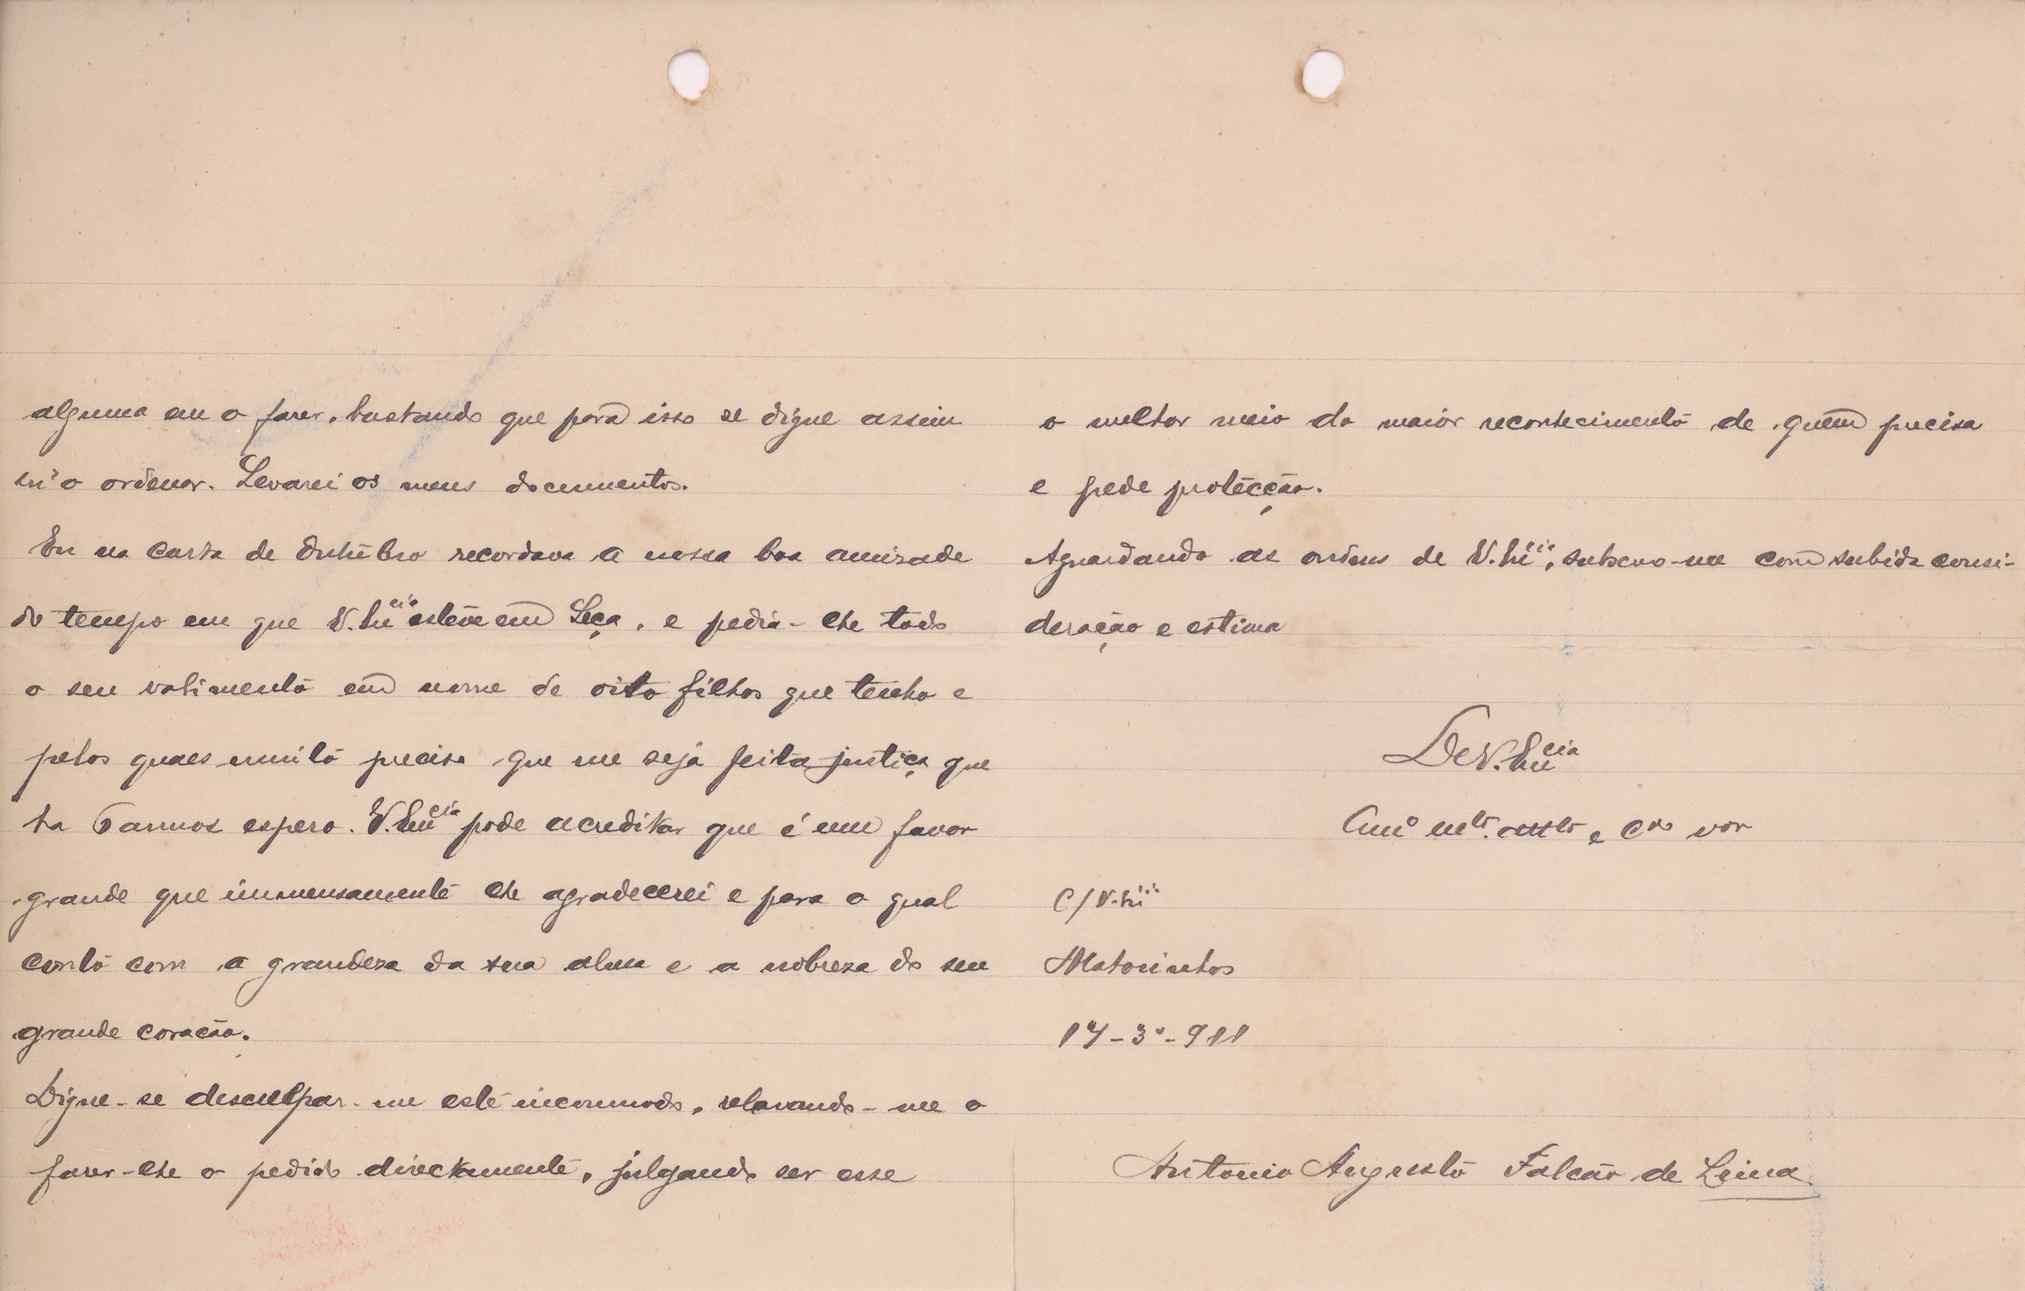 alguma eu o fazer, bastando que para isso se digne assim
m'o ordenar. Levarei os meus documentos.
Eu na carta de Outubro recordava a nossa boa amizade
do tempo em que V. Ex.cia esteve em Leça, e pedia-lhe todo
o seu valimento em nome de oito filhos que tenho e
pelos quaes muito preciso que me seja feita justiça que
ha 6 annos espero. V. Ex.cia pode acreditar que é um favor
grande que immensamente lhe agradecerei e para o qual
conto com a grandeza da sua alma e a nobreza do seu
grande coração.
Digne-se desculpar-me este incommodo, relevando-me o
fazer-lhe o pedido directamente, julgando ser esse
o melhor meio do maior reconhecimento de quem precisa
e pede protecção.
Aguardando as ordens de V. Ex.cia, subscrevo-me com subida consi-
deração e estima
De V. Ex.cia
Am.o m.to att.to e C.do
C/V. Ex.cia
Matosinhos
17-3º-911
Antonio Augusto Falcão de Lima